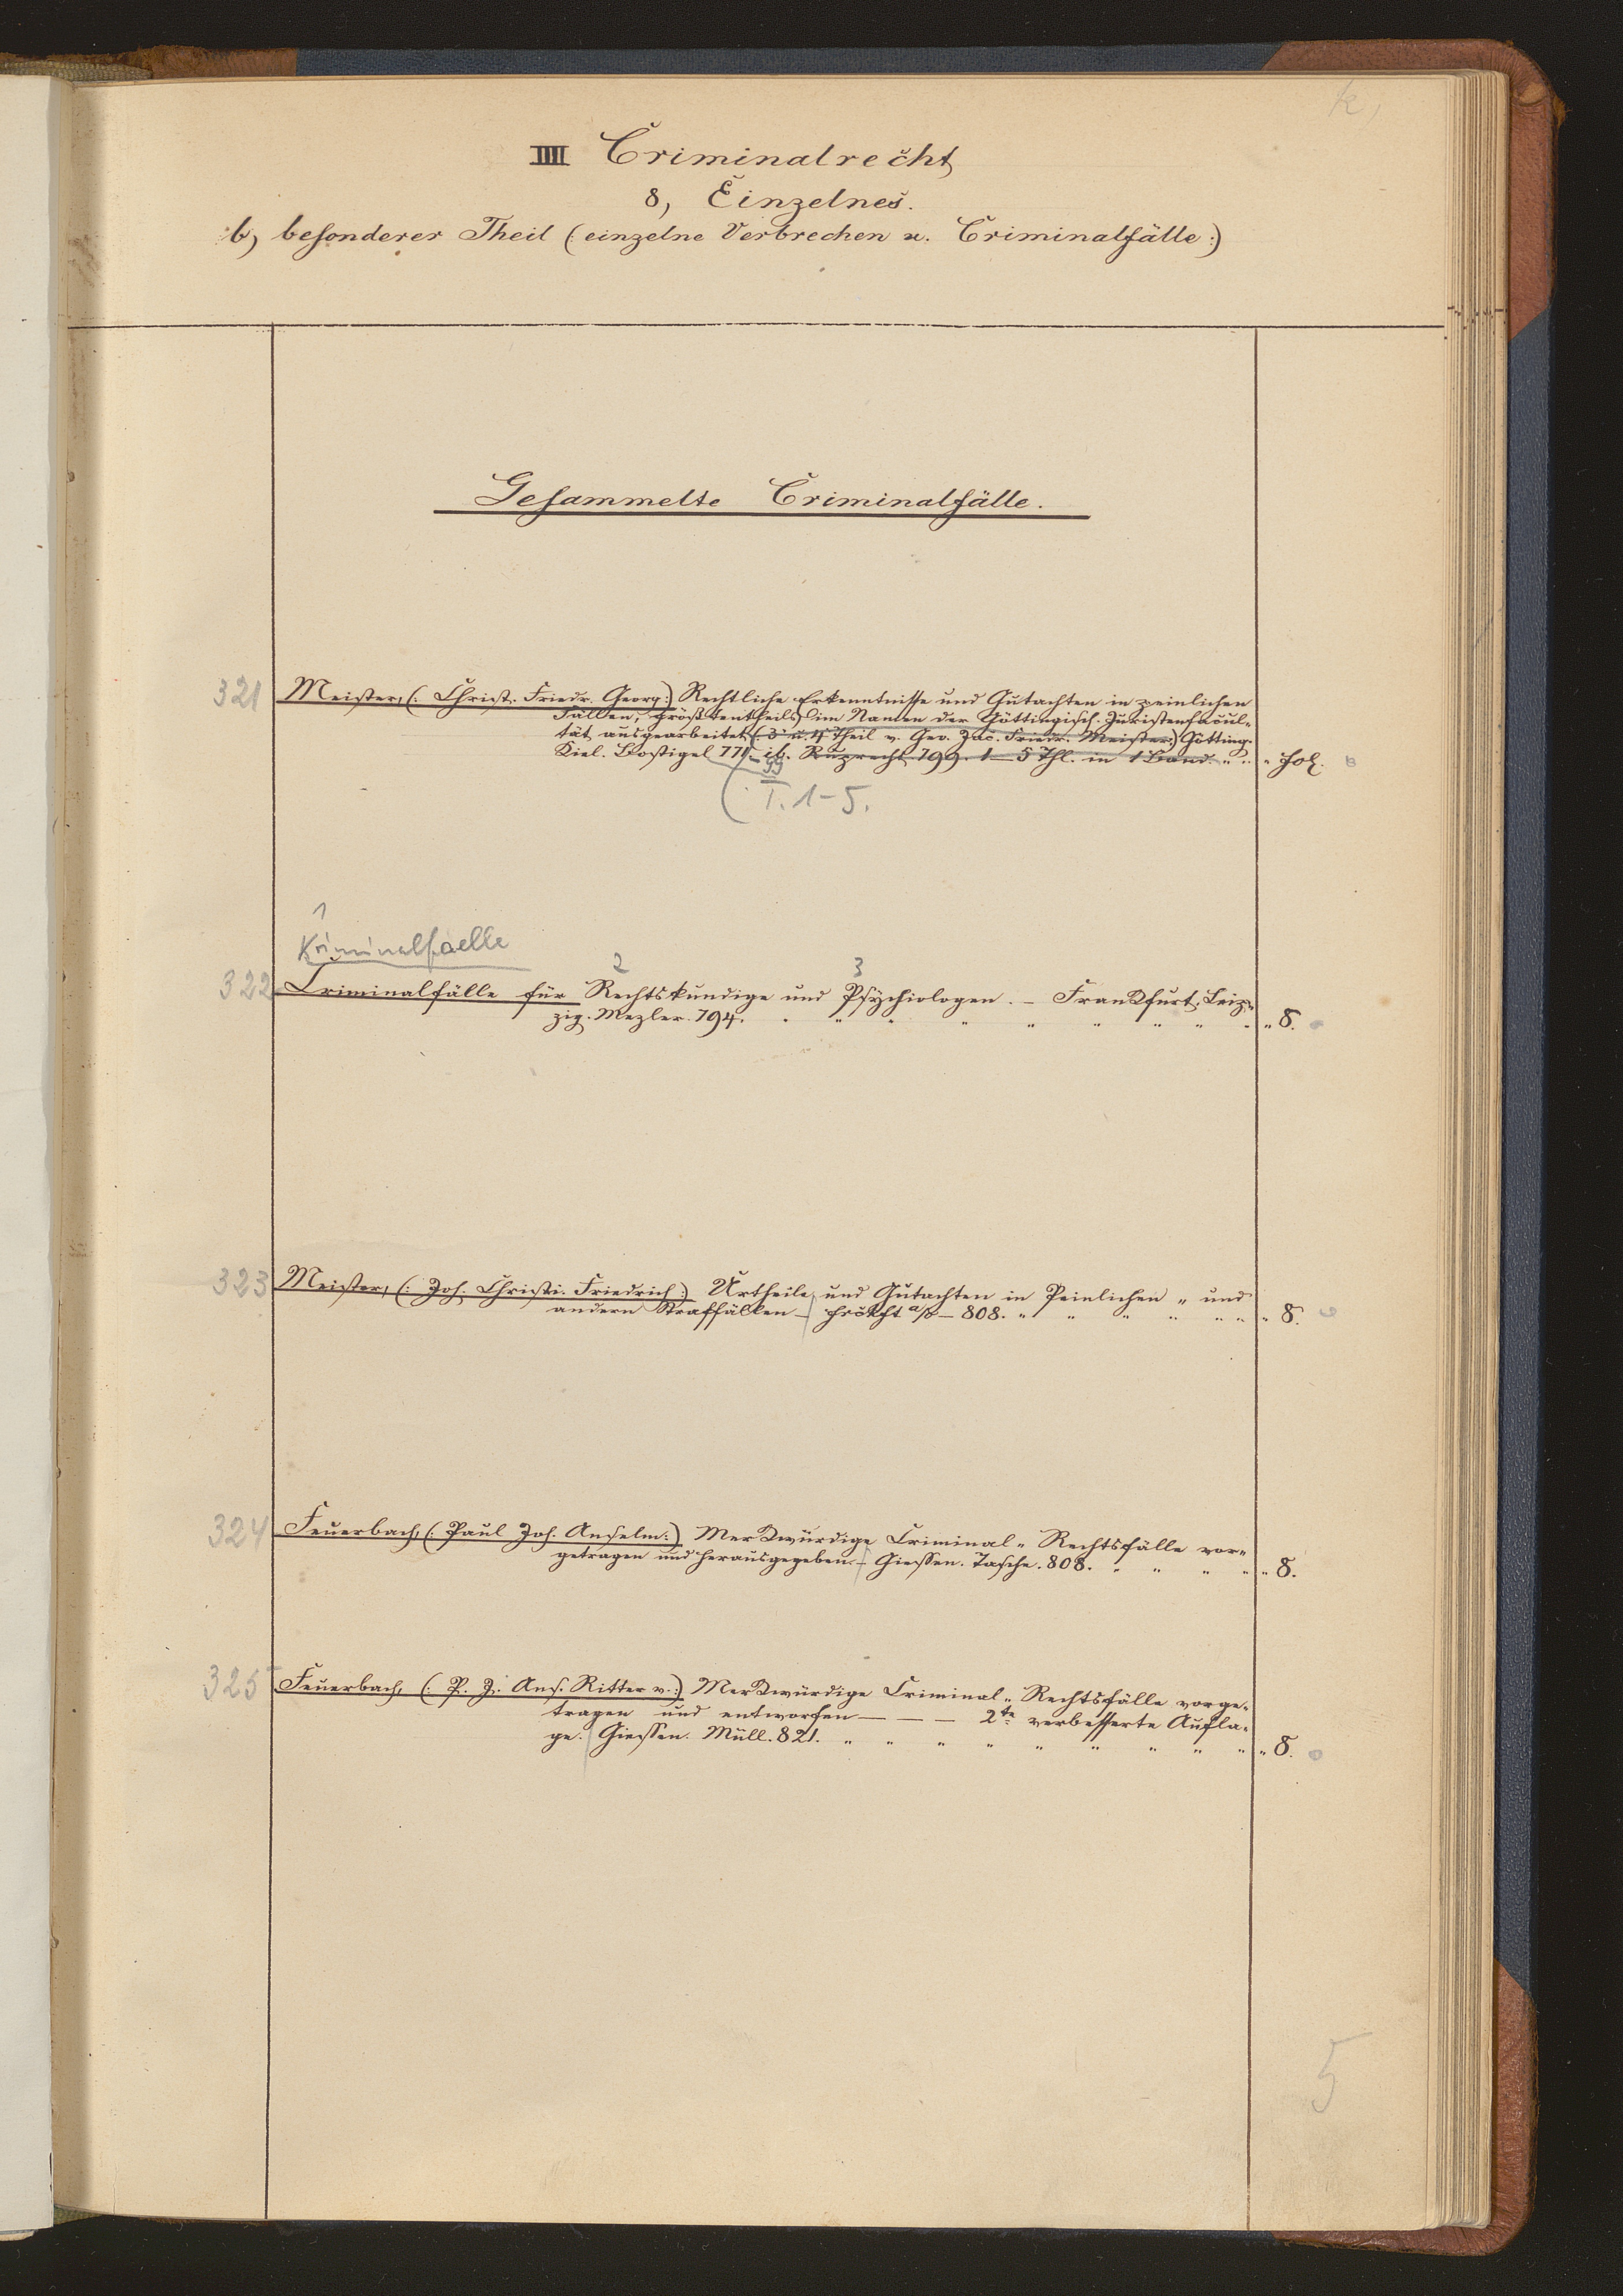 k,
IIII Criminalrecht
8, Einzelnes.
b, besonderer Theil (: einzelne Verbrechen u. Criminalfälle :)
Gesammelte Criminalfälle.
321 Meister, (: Christ. Friedr. Georg :) Rechtliche Erkenntnisse und Gutachten in peinlichen
Fällen, größtentheils im Namen der Göttingisch. Juristenfacul-
tät ausgearbeitet (: 3 u. 4 Theil v. Geo. Jac. Friedr. Meister :) Götting.
Kiel. Bossigel 771 – ib. Ruprecht 799. 1–5 Thl. in 1 Band. " " " Fol.
99
T. 1–5.
1
Kriminalfaelle
2 3
322 Criminalfälle für Rechtskundige und Psychiologen. – Frankfurt, Leip-
zig. Mezler. 794. " " " " " " " " " 8.
323 Meister, (: Joh. Christi. Friedrich :) Urtheile und Gutachten in Peinlichen " und
andern Straffällen – Frkft a/o – 808. " " " " " " " 8.
324 Feuerbach, (: Paul Joh. Anselm :) Merkwürdige Criminal- Rechtsfälle vor-
getragen und herausgegeben. – Giessen. Tasche. 808. " " " " " 8.
325 Feuerbach, (: P. J. Ans. Ritter v. :) Merkwürdige Criminal- Rechtsfälle vorge-
tragen und entworfen – – – 2te verbesserte Aufla-
ge. Giessen. Müll. 821. " " " " " " " " " " 8.
5